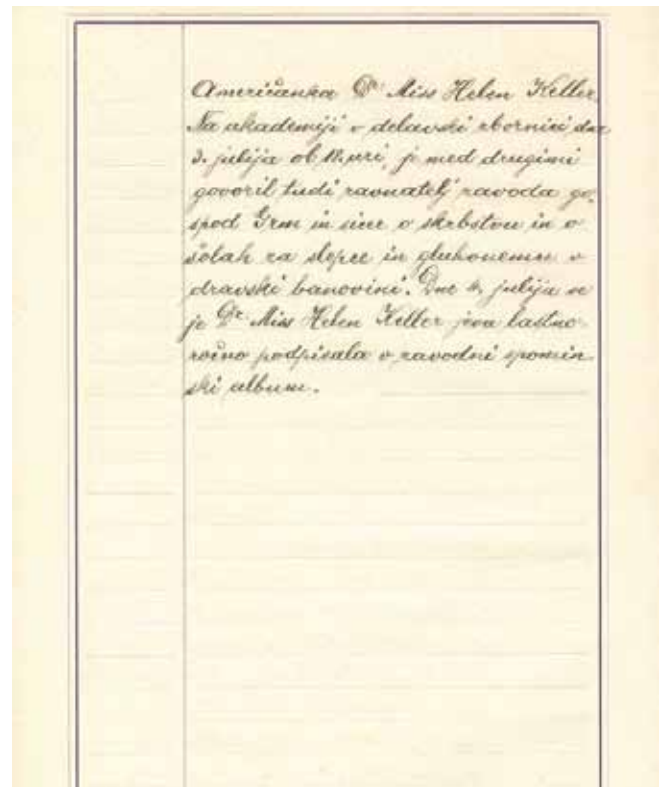 Američanka Dr Miss Helen Keller.
Na akademiji v delavski zbornici dne
3. julija ob 18. uri, je med drugimi
govoril tudi ravnatelj zavoda go-
spod Grm in sicer o skrbstvu in o
šolah za slepce in gluhoneme v
dravski banovini. Dne 4. julija se
je Dr Miss Helen Keller lastno-
ročno podpisala v zavodni spomin-
ski album.